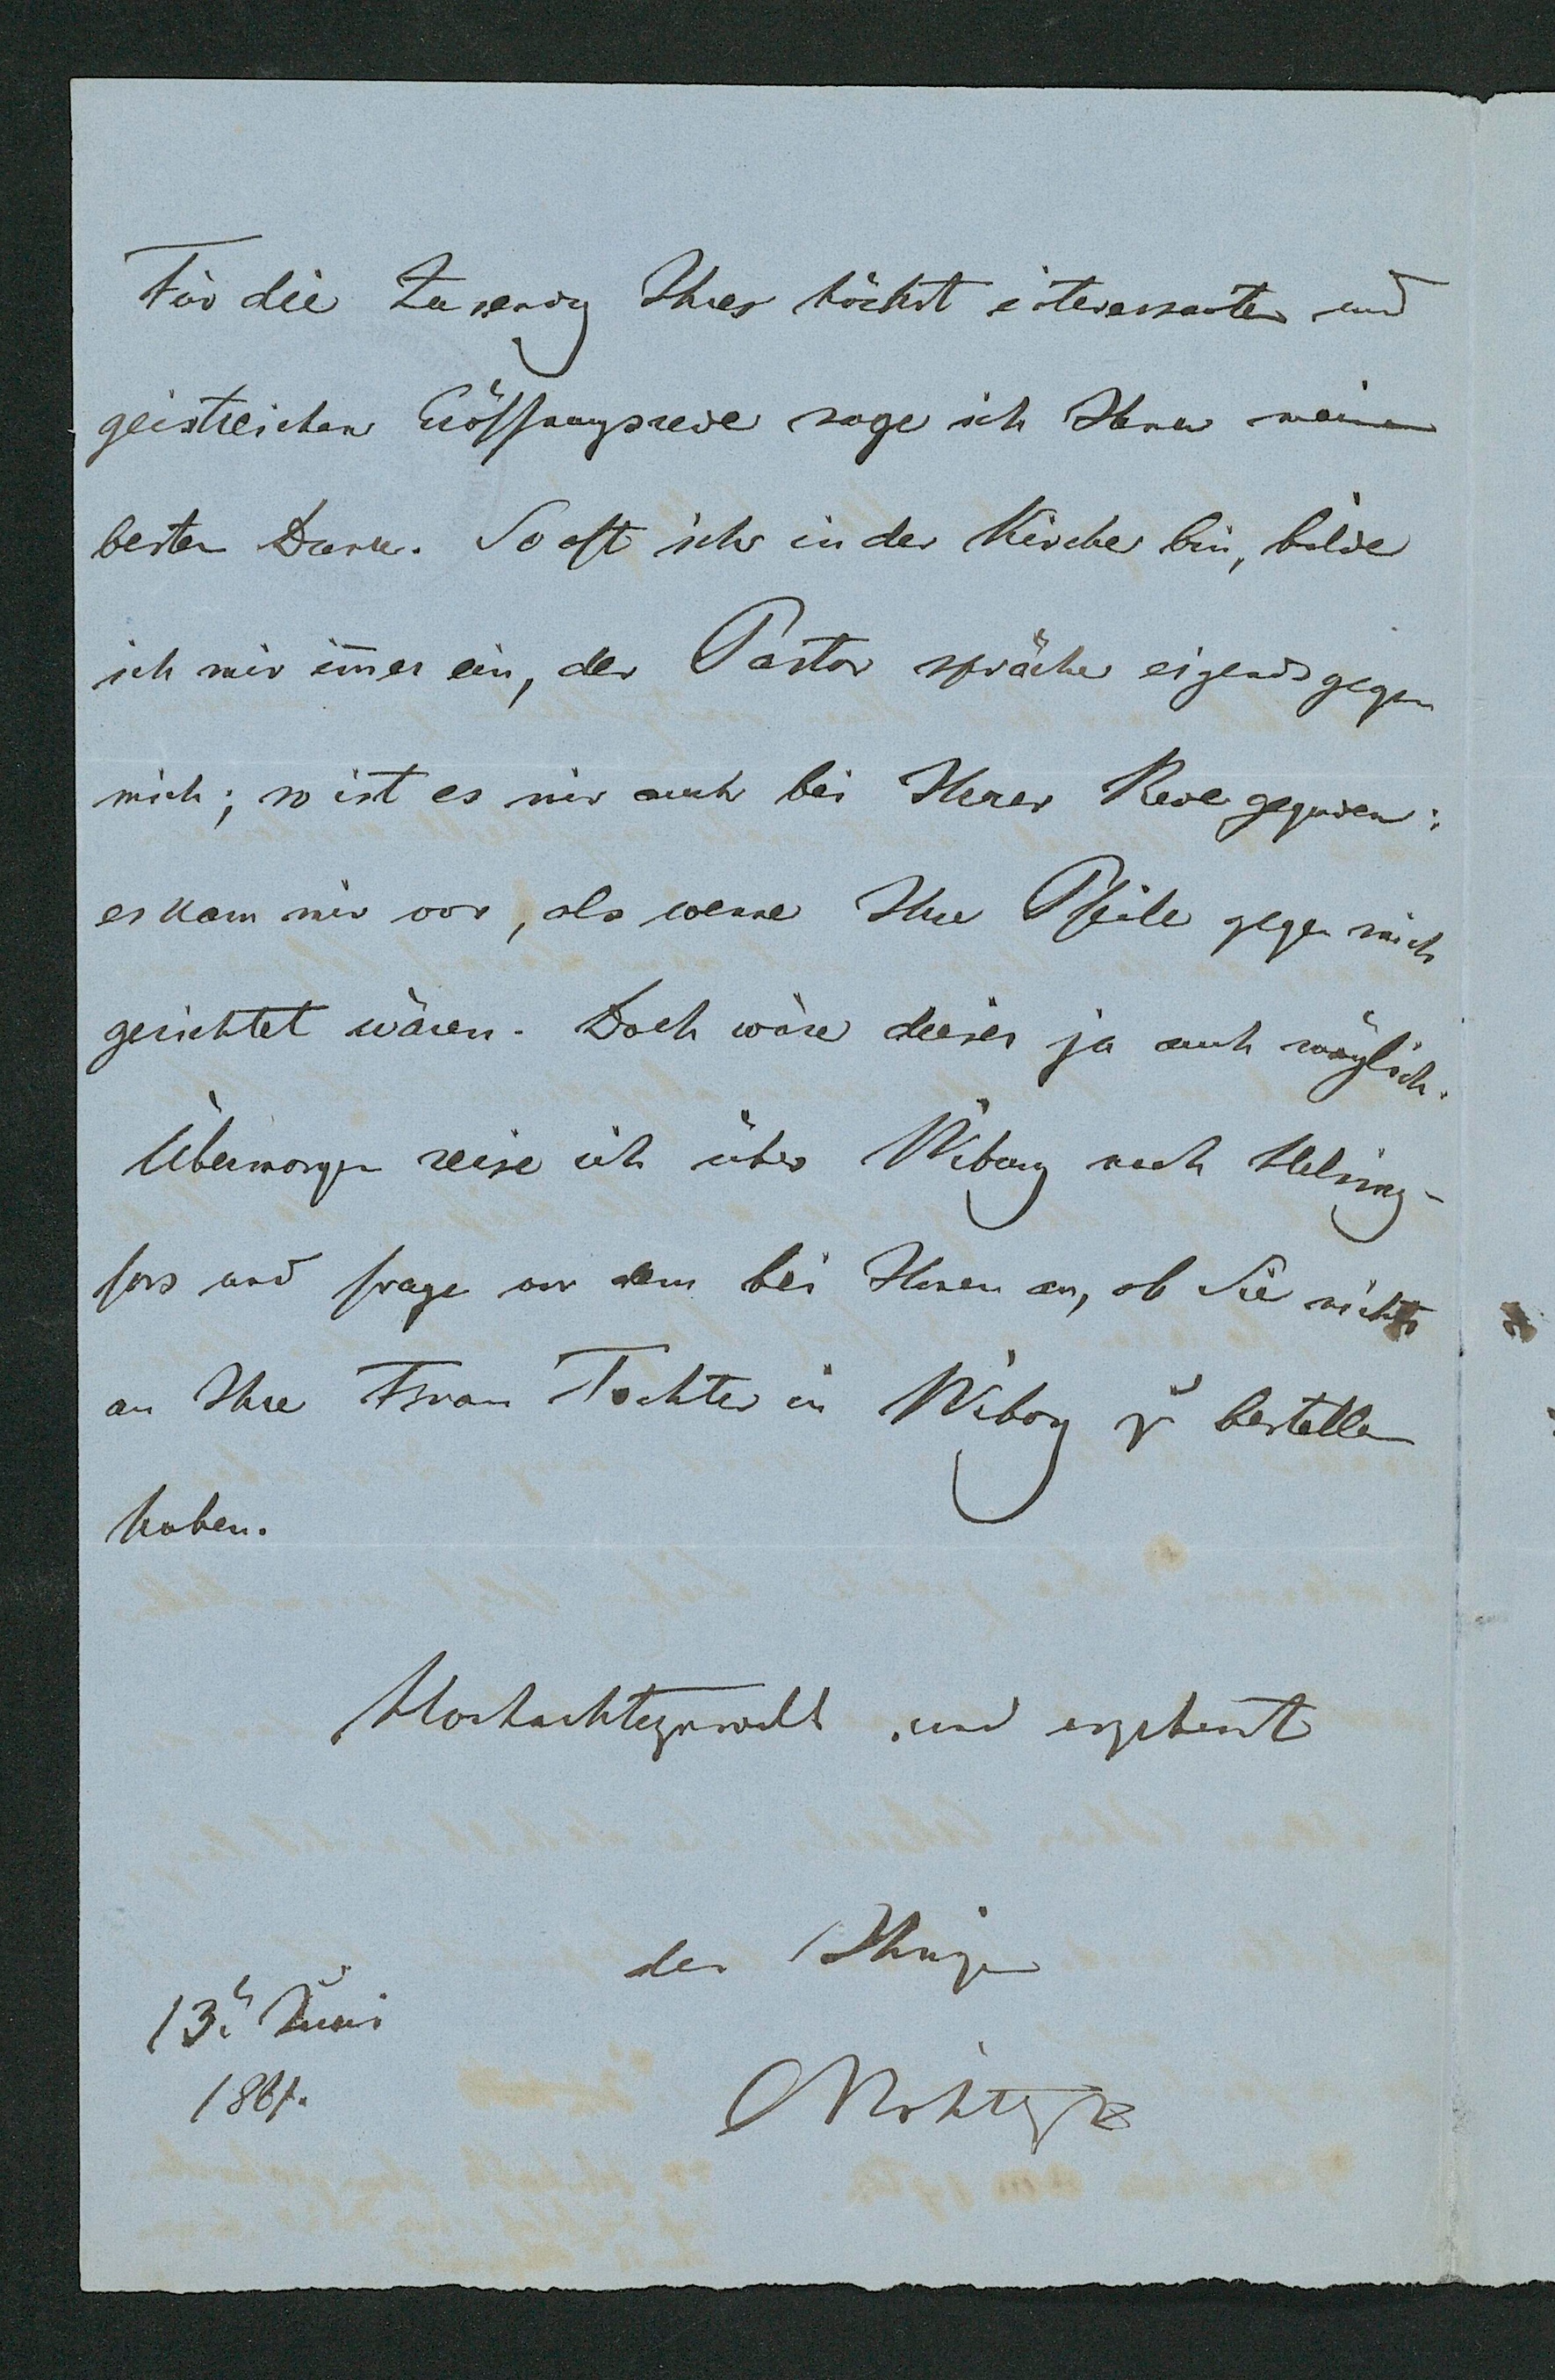 Für die Zusendung Ihrer höchst interessanten und
geistreichen Eröffnungsrede sage ich Ihnen meinen
besten Dank. So oft ich in der Kirche bin, bilde
ich mir im̅er ein, der Pastor spräche eigends gegen
mich; so ist es mir auch bei Ihrer Rede gegangen:
es kam mir vor, als wenn Ihre Pfeile gegen mich
gerichtet wären. Doch wäre dieses ja auch möglich.
Übermorgen reise ich über Wiborg nach Helsing-
fors und frage bei Ihnen an, ob Sie nichts
an Ihre Frau Tochter in Wiborg zu bestellen
haben.
Hochachtungsvoll und ergebenst
der Ihrige
13. Juni
1861.